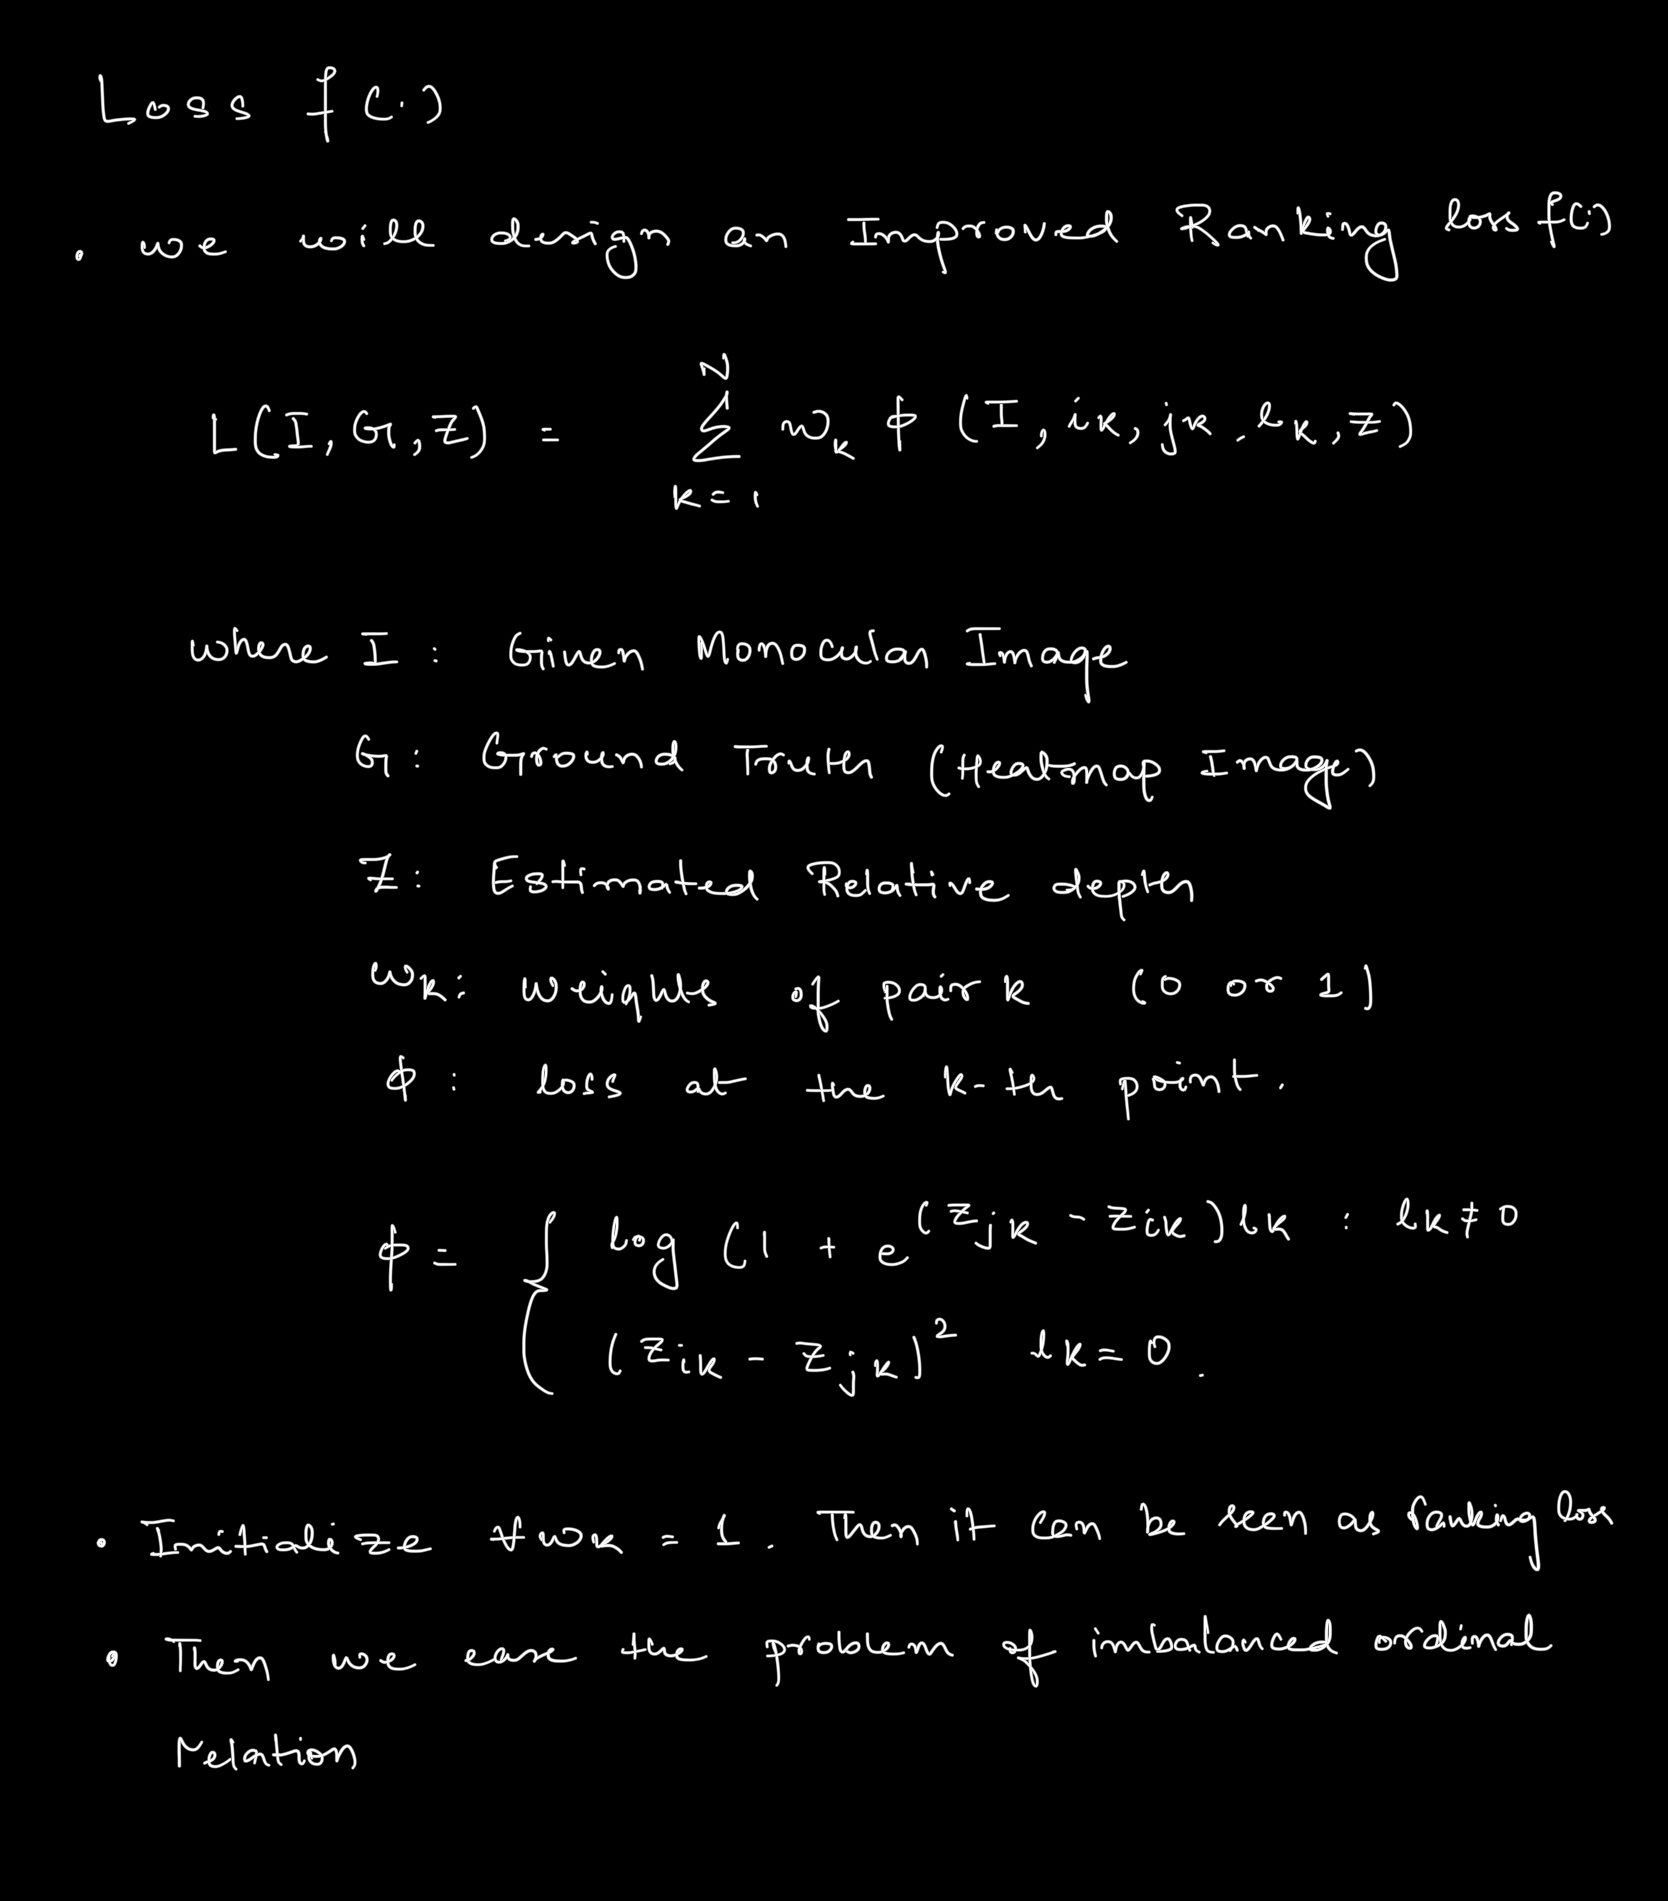 Loss f(.)
. we will design an Improved Ranking loss f(.)
L(I, G, Z) = Σ_{k=1}^{N} w_k ϕ (I, i_k, j_k, l_k, z)
where I : Given Monocular Image
G : Ground Truth (Heatmap Image)
Z : Estimated Relative depth
w_k : weights of pair k (0 or 1)
ϕ : loss at the k-th point.
ϕ = { log (1 + e^{(z_jk - z_ik) l_k} : l_k ≠ 0
(z_ik - z_jk)^2 l_k = 0 .
• Initialize ∀ w_k = 1 . Then it can be seen as ranking loss
• Then we ease the problem of imbalanced ordinal
relation